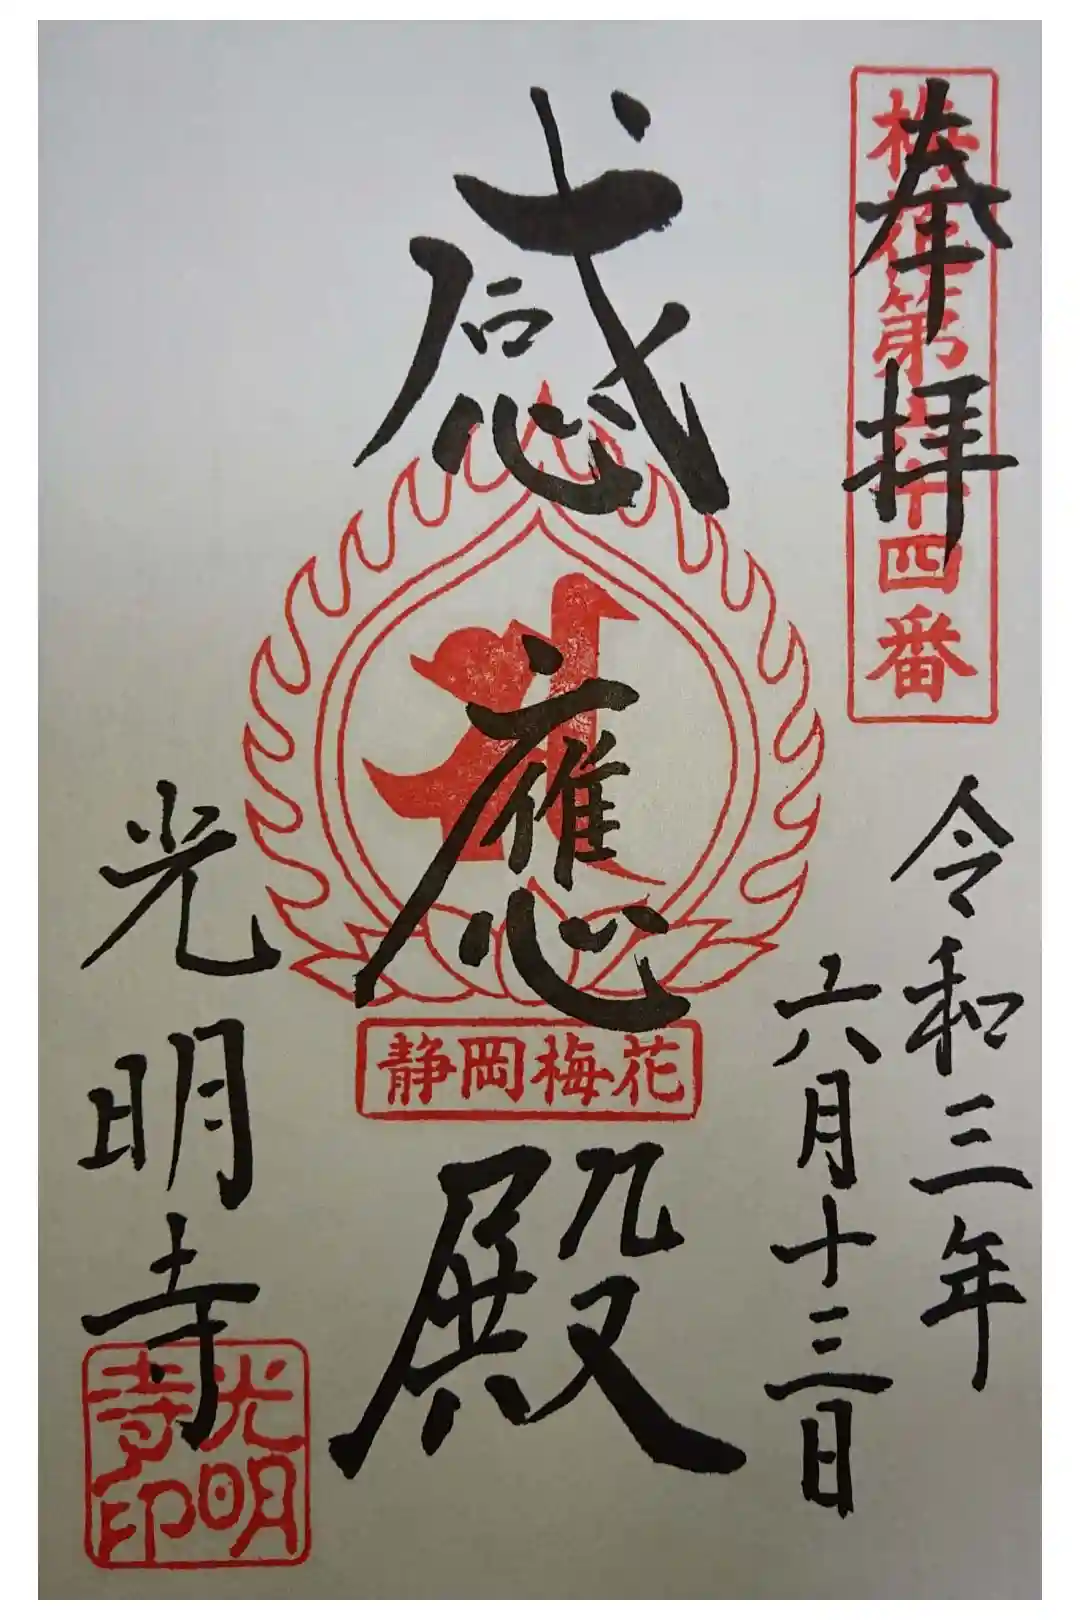 奉拝
梅花第六十四番
令和三年
六月十三日
感應殿
静岡梅花
光明寺
光明
寺印